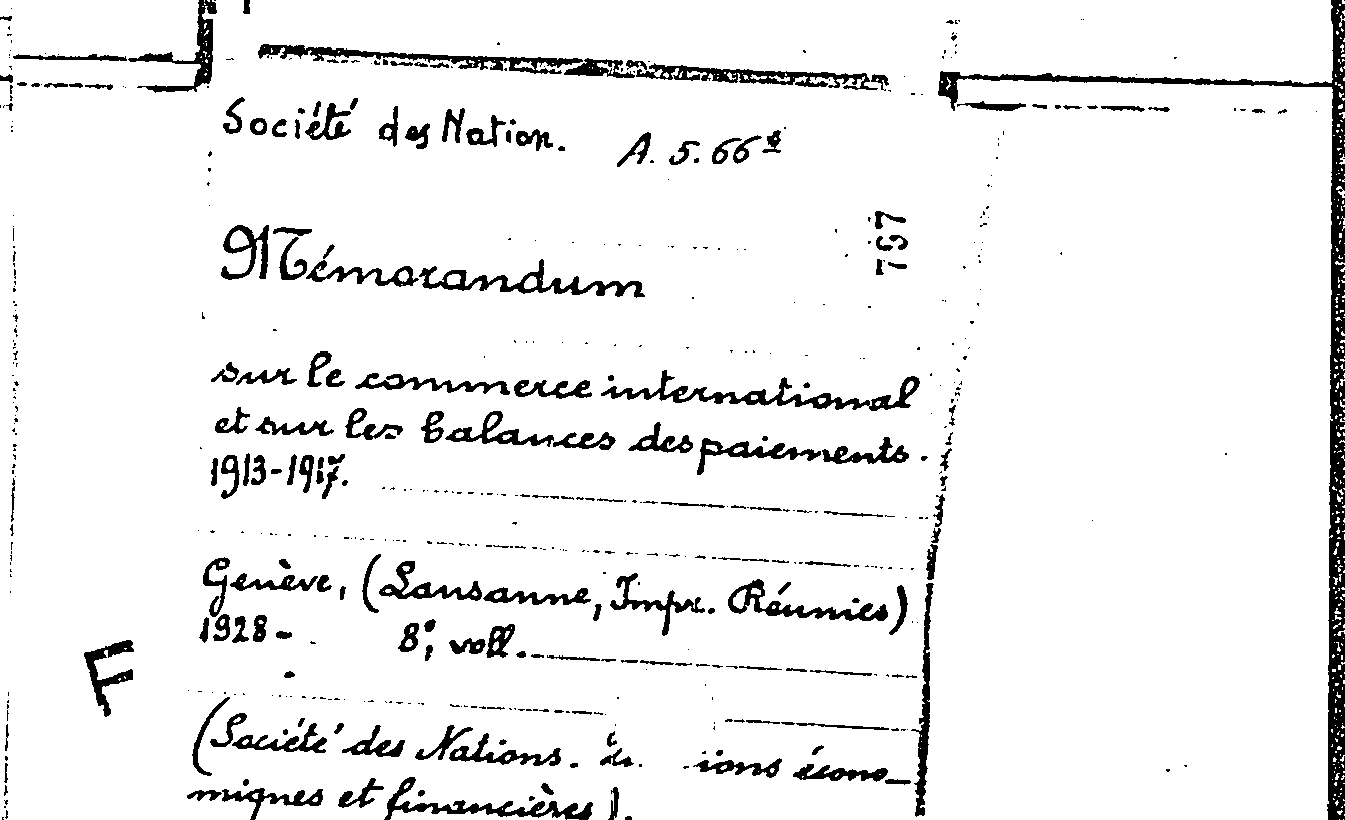 Société des Nation. A. 5. 66e
767
Mémorandum
sur le commerce international
et sur les balances des paiements.
1913-1917.
Genève, (Lausanne, Impr. Réunies)
1928- 8°, voll.
F
(Société des Nations. ions écono-
miques et financières).